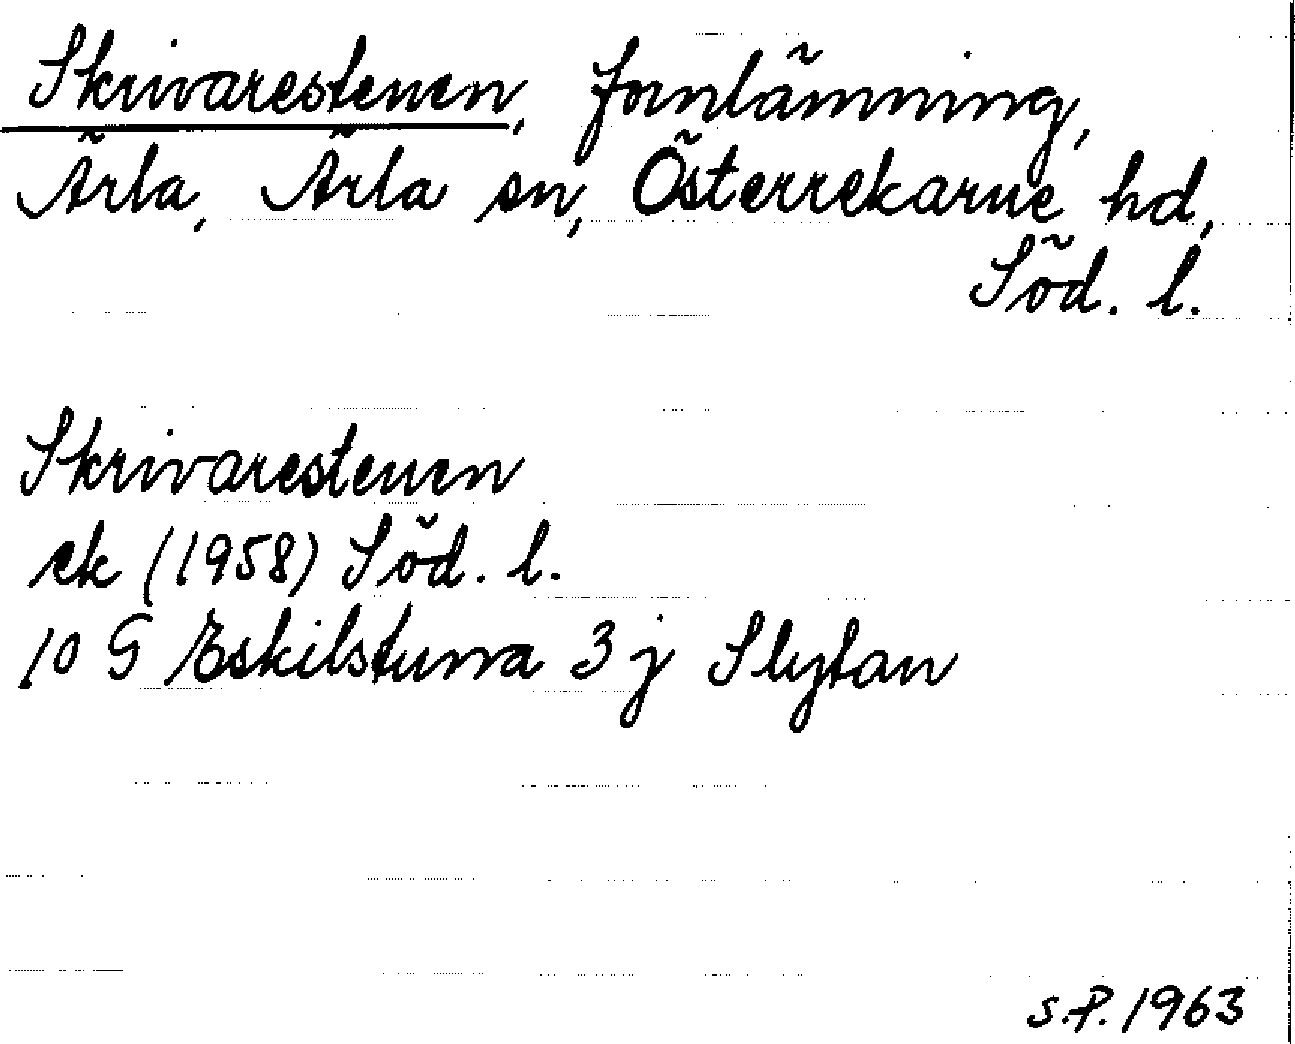 Skrivarestenen, fornlämning,
Ärla, Ärla sn, Österrekarne hd,
Söd. l.
Skrivarestenen
ek (1958) Söd. l.
10 G Eskilstuna 3 j Slytan
S.P. 1963